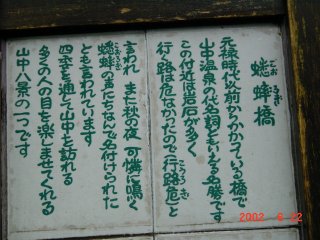 蟋蟀橋
こおろぎ
元禄時代以前からかかっている橋で
山中温泉の代名詞ともいえる名勝です
この付近は岩石が多く
行く路は危なかったので行路危と
こうろぎ
言われ また秋の夜 可憐に鳴く
蟋蟀の声にちなんで名付けられた
こおろぎ
とも言われています
四季を通じて山中を訪れる
多くの人の目を楽しませてくれる
山中八景の一つです
2002 6 22